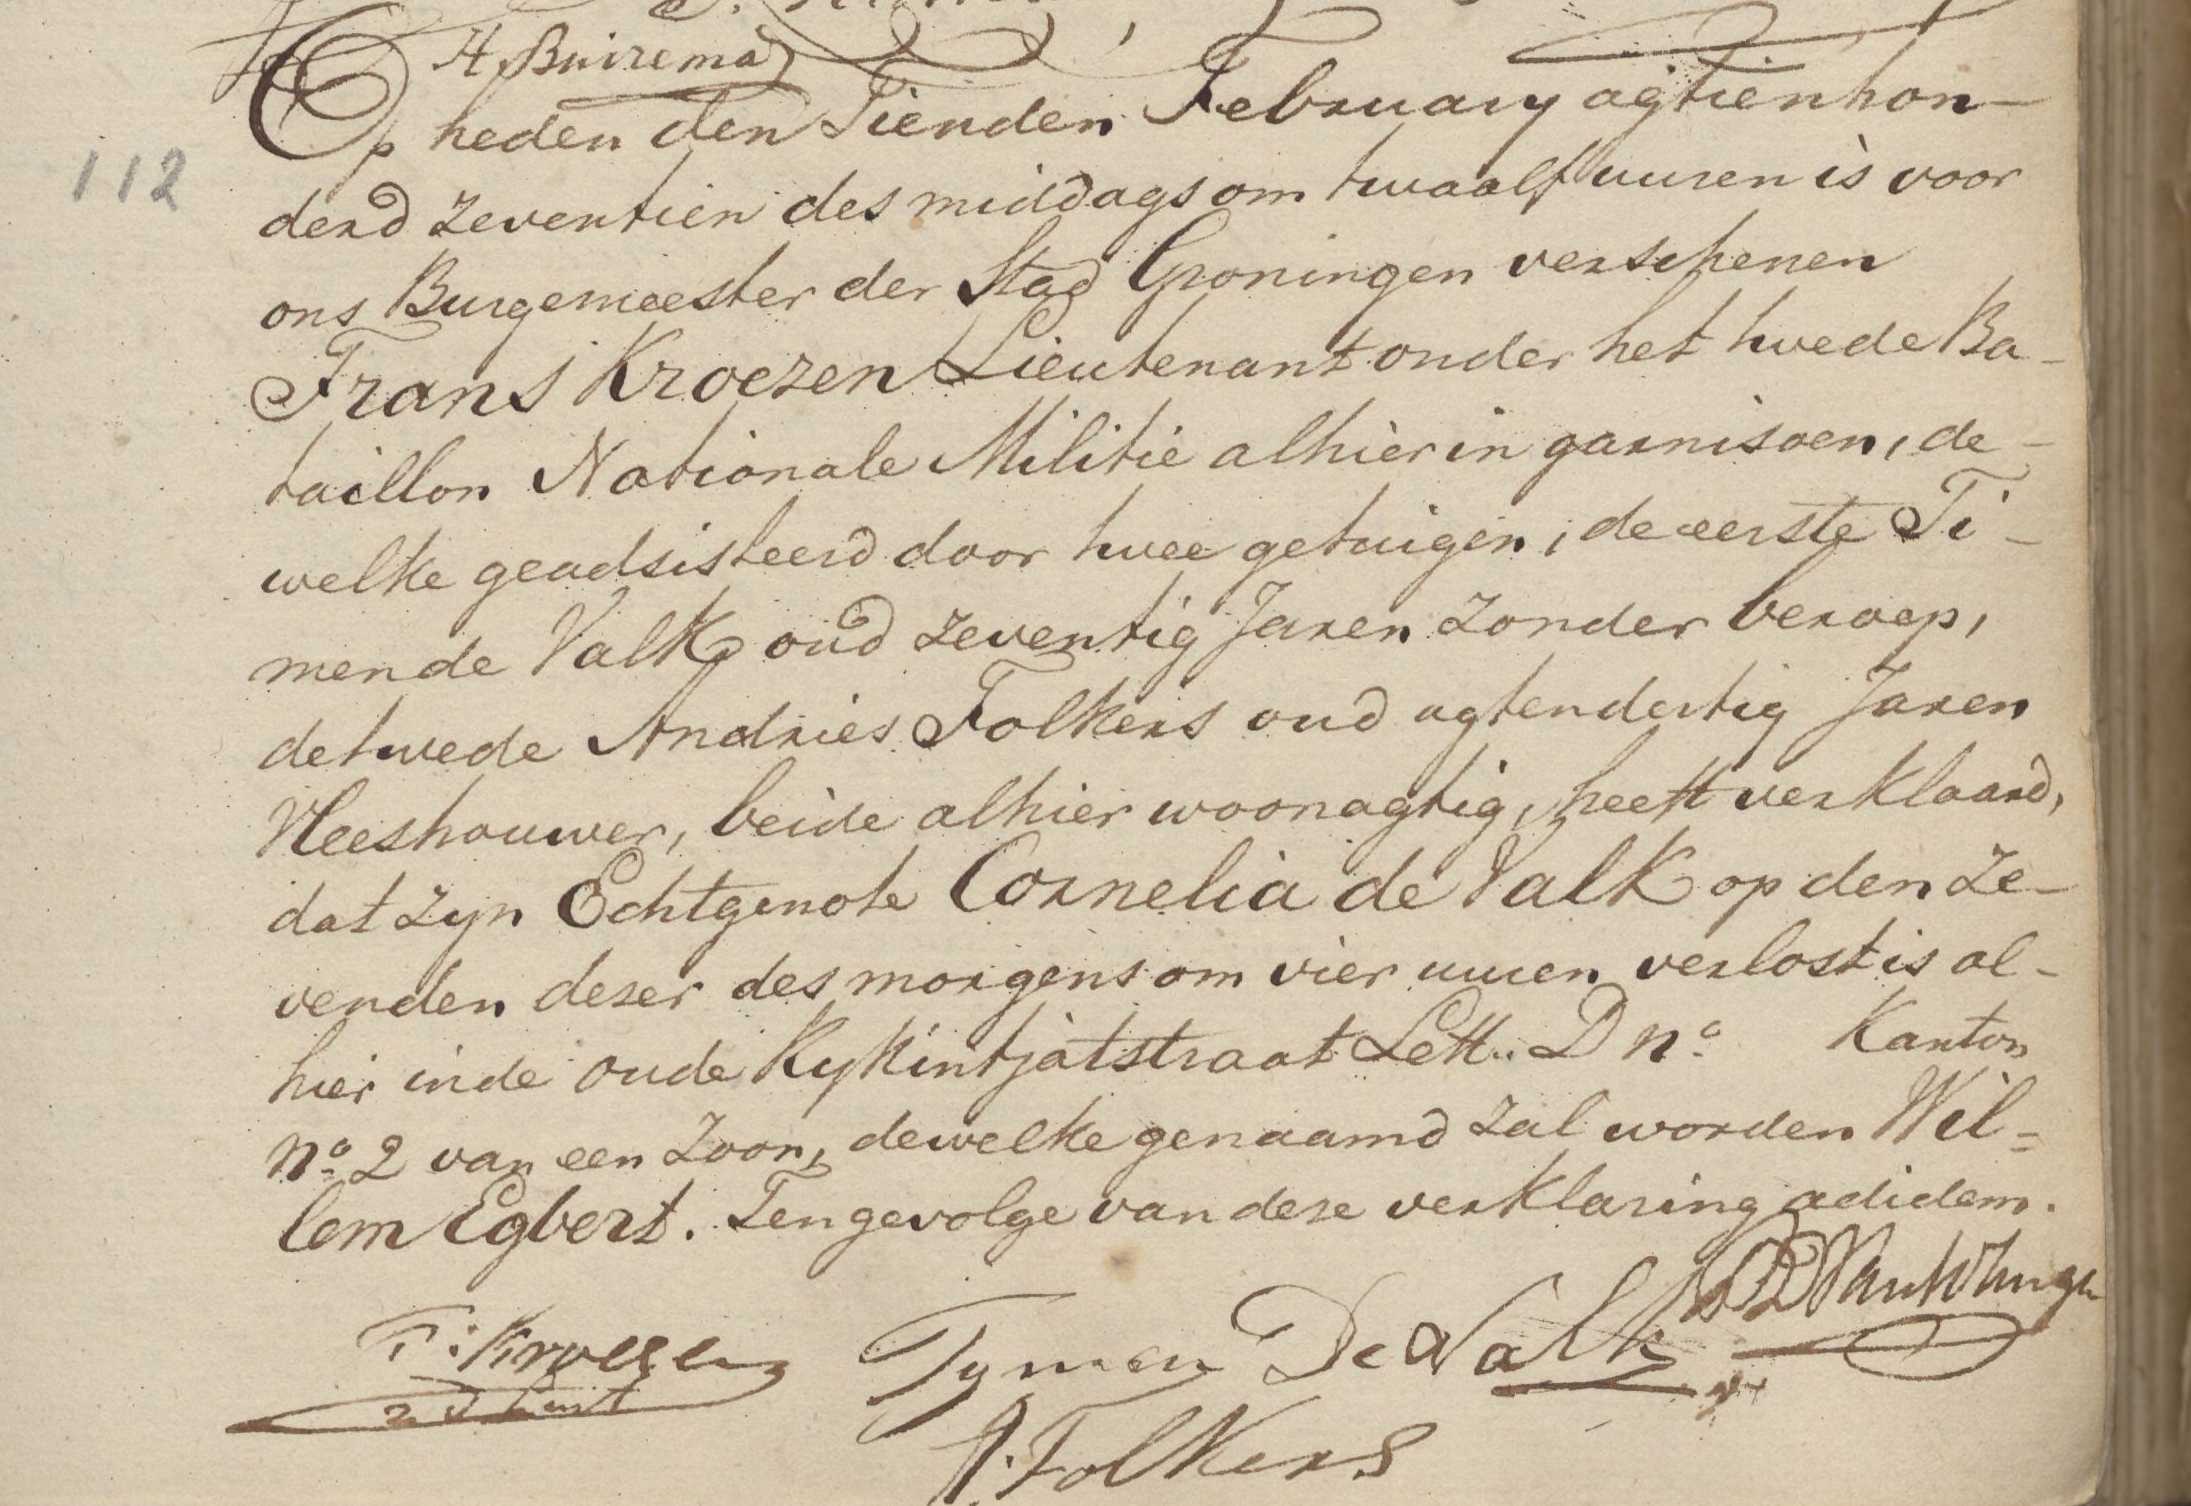 H Buirema
112
Op heden den Tienden February agtienhon-
derd zeventien des middags om twaalf uuren is voor
ons Burgemeester der Stad Groningen verschenen
Frans Kroezen Lieutenant onder het twede Ba-
taillon Nationale Militie alhier in garnisoen, de-
welke geadsisteerd door twee getuigen, de eerste Ti-
men de Valk oud zeventig Jaren zonder beroep,
de twede Andries Folkers oud agtendertig Jaren
Vleeshouwer, beide alhier woonagtig, heeft verklaard,
dat zyn Echtgenote Cornelia de Valk op den Ze-
venden dezer des morgens om vier uuren verlost is al-
hier in de oude Kykintjatstraat Lett. D no. Kanton
no. 2 van een Zoon, dewelke genaamd zal worden Wil-
lem Egbert. Tengevolge van deze verklaring ad idem.
F: Kroezen
Tymen De Valk
2d Luit
A. Folkers